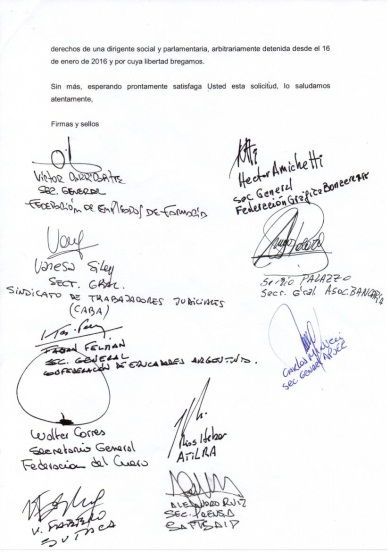 derechos de una dirigente social y parlamentaria, arbitrariamente detenida desde el 16
de enero de 2016 y por cuya libertad bregamos.
Sin más, esperando prontamente satisfaga Usted esta solicitud, lo saludamos
atentamente,
Firmas y sellos
Victor
SEC. GENERAL
FEDERACIÓN DE EMPLEADOS DE FARMACIA
Hector Amichetti
Sec General
Federación Gráfica Bonaerense
Vanesa Siley
SECT. GRAL.
SINDICATO DE TRABAJADORES JUDICIALES
(CABA)
Sergio PALAZZO
Secr. Gral ASOC. BANCARIA
FABIAN FELMAN
SEC. GENERAL
CONFEDERACIÓN DE EDUCADORES ARGENTINOS.
Carlos
SEC GENERAL APSEE
Walter Correa
Secretario General
Federacion del Cuero
Heber
ATILRA
ALEJANDRO RUIZ
SEC. PRENSA
SATSAID
SUTPA